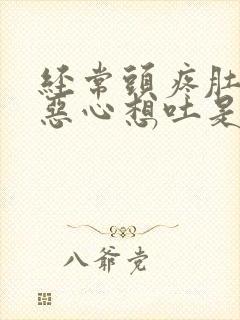 經常頭疼肚
惡心想吐是
八爺党